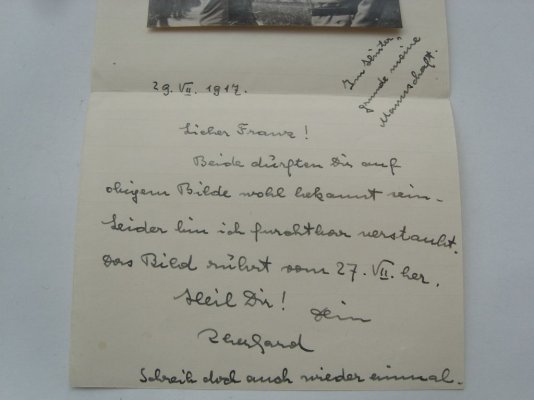 Im Hinter-
grunde meine
Mannschaft.
29. VII. 1917.
Lieber Franz!
Beide dürften Dir auf
obigem Bilde wohl bekannt sein.
Leider bin ich furchtbar verstaubt.
Das Bild rührt vom 27. VII. her.
Heil Dir! Dein
Eberhard
Schreib doch auch wieder einmal.